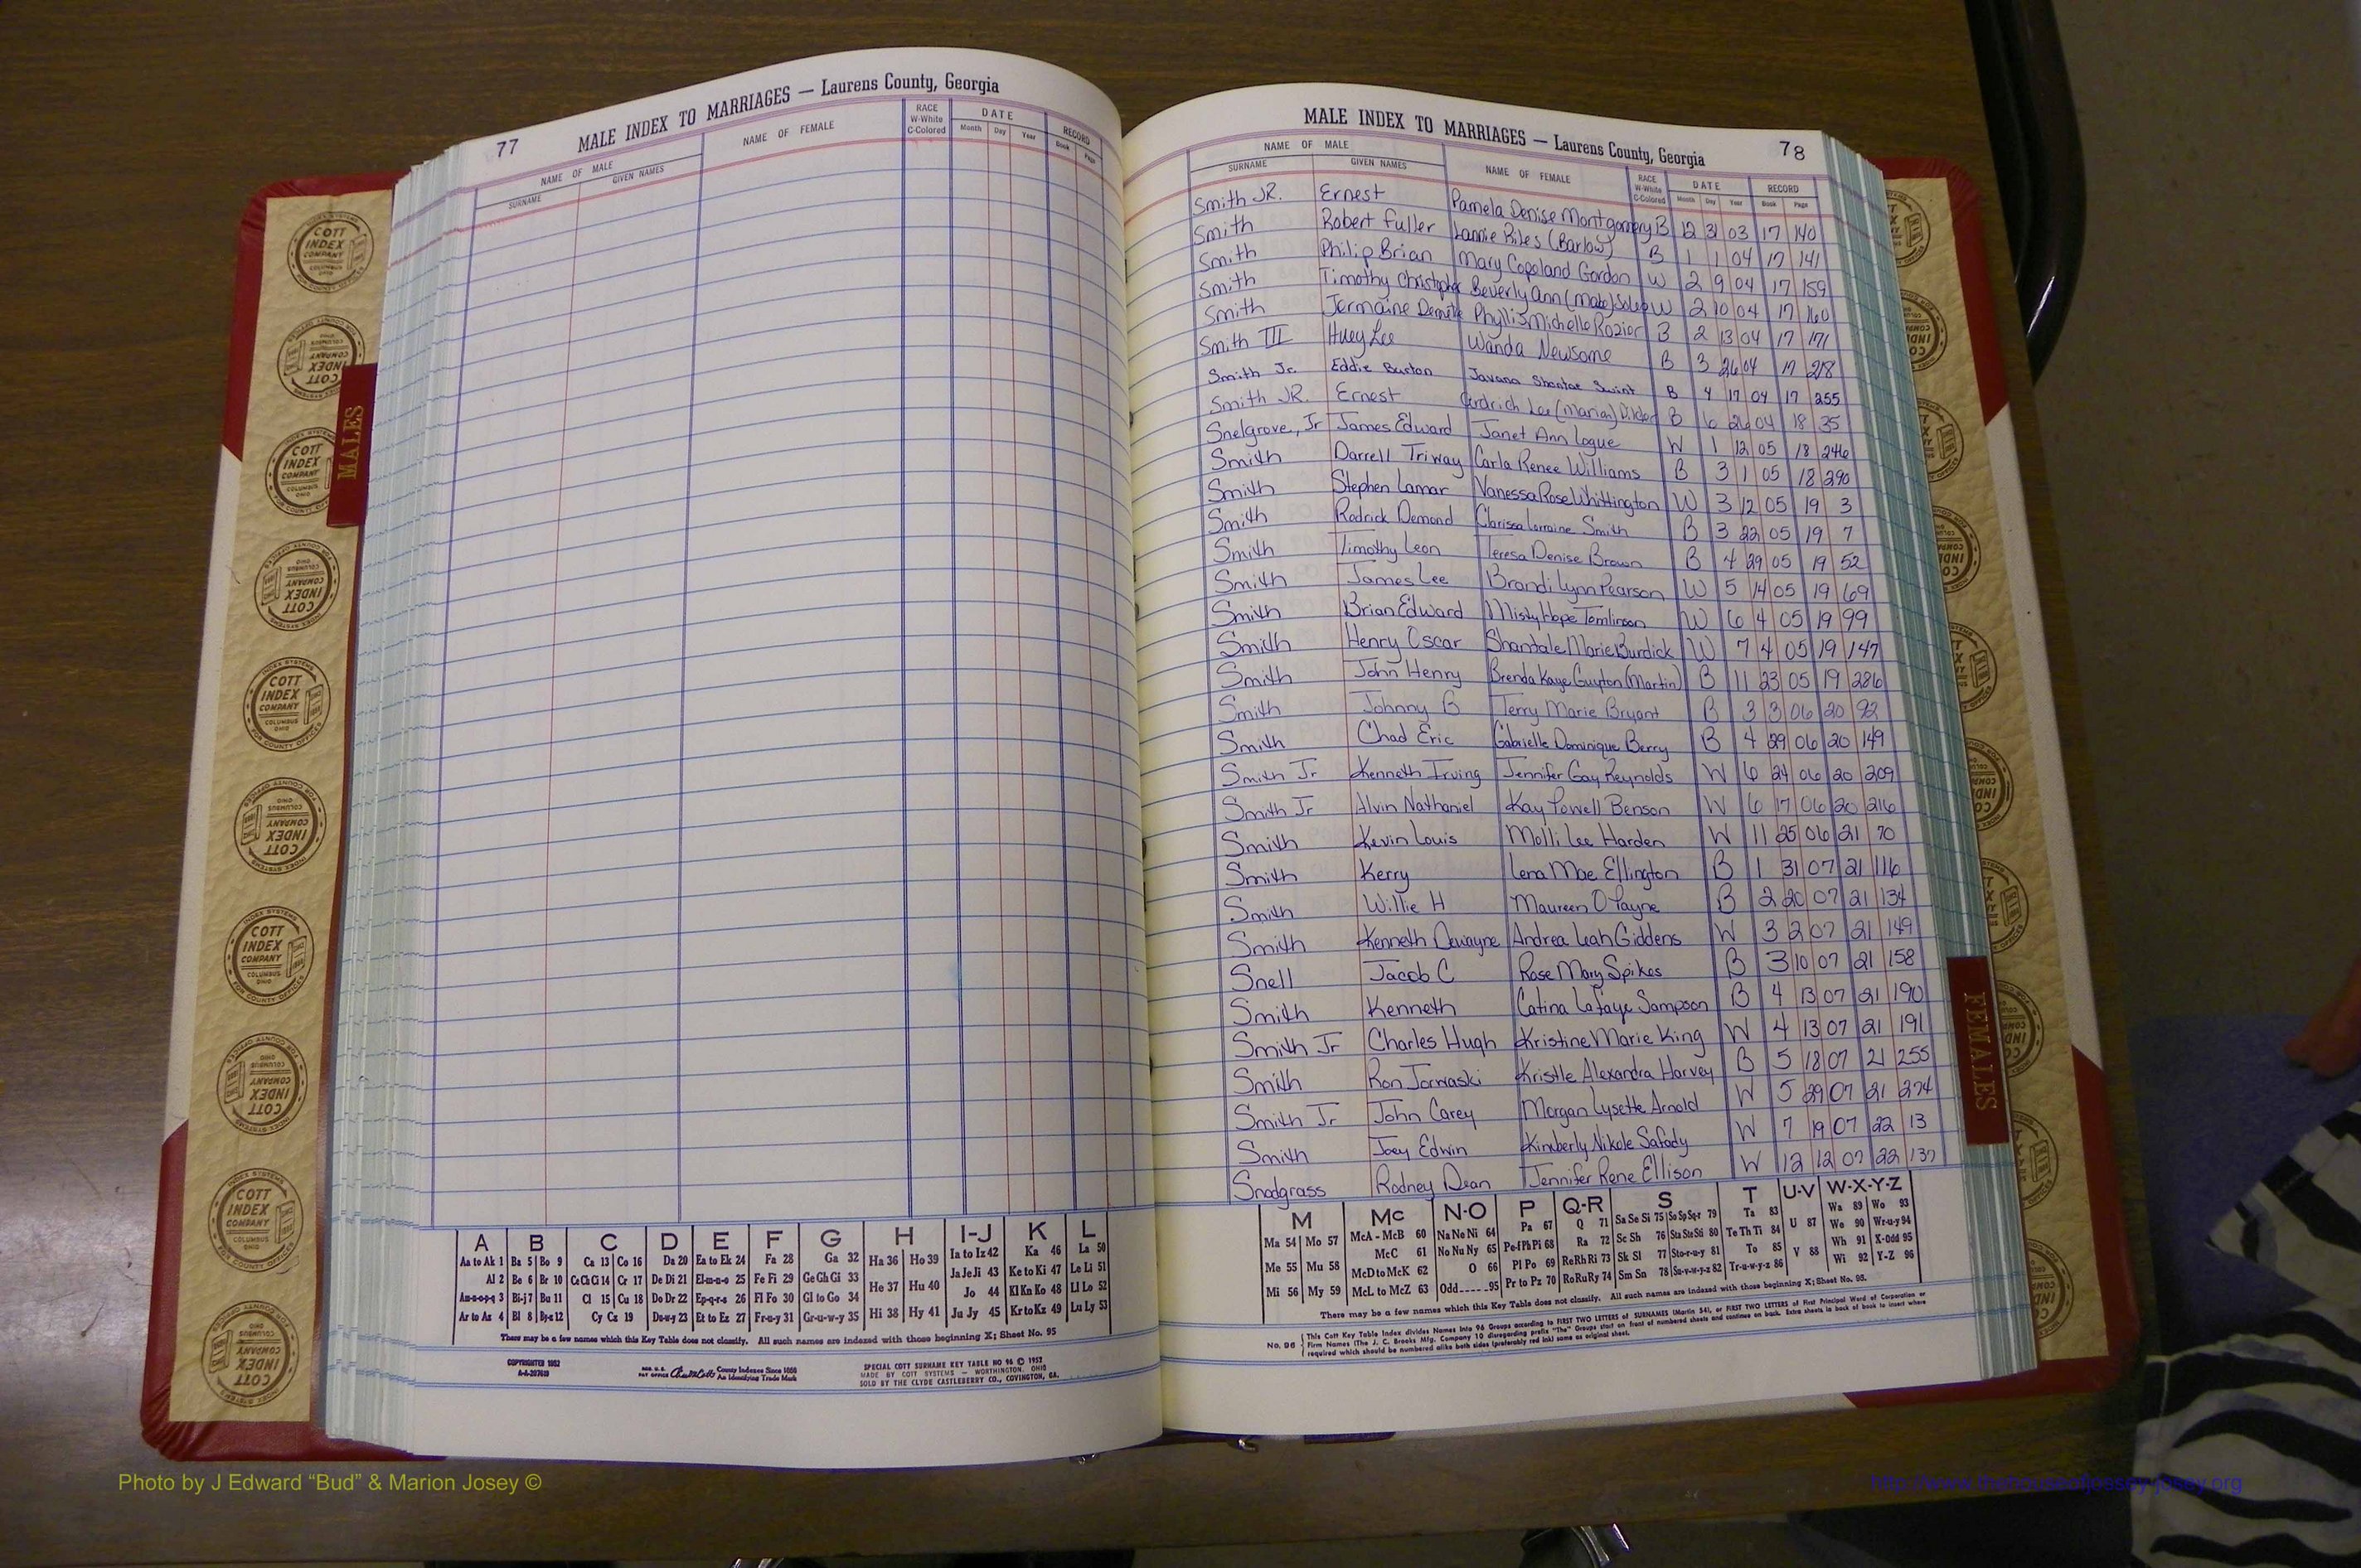 77 MALE INDEX TO MARRIAGES — Laurens County, Georgia
NAME OF MALE NAME OF FEMALE RACE W-White C-Colored DATE RECORD
SURNAME GIVEN NAMES Month Day Year Book Page
MALE INDEX TO MARRIAGES — Laurens County, Georgia 78
NAME OF MALE NAME OF FEMALE RACE W-White C-Colored DATE RECORD
SURNAME GIVEN NAMES Month Day Year Book Page
Smith JR. Ernest Pamela Denise Montgomery B 12 31 03 17 140
Smith Robert Fuller Lannie Riles (Barlow) B 1 1 04 17 141
Smith Philip Brian Mary Copeland Gordon W 2 9 04 17 159
Smith Timothy Christopher Beverly Ann W 2 10 04 17 160
Smith Jermaine Phyllis Michelle Rozier B 2 13 04 17 171
Smith III Huey Lee Wanda Newsome B 3 26 04 17 218
Smith Jr. Eddie Burton Javana Shontae Swint B 4 17 04 17 255
Smith JR. Ernest Lee (Marian) B 6 26 04 18 35
Snelgrove, Jr James Edward Janet Ann Logue W 1 12 05 18 246
Smith Darrell Triway Carla Renee Williams B 3 1 05 18 290
Smith Stephen Lamar Vanessa Rose Whittington W 3 12 05 19 3
Smith Rodrick Demond Clarissa Lorraine Smith B 3 22 05 19 7
Smith Timothy Leon Teresa Denise Brown B 4 29 05 19 52
Smith James Lee Brandi Lynn Pearson W 5 14 05 19 69
Smith Brian Edward Misty Hope Tomlinson W 6 4 05 19 99
Smith Henry Oscar Shantale Marie Burdick W 7 4 05 19 147
Smith John Henry Brenda Kaye Guyton (Martin) B 11 23 05 19 286
Smith Johnny B Terry Marie Bryant B 3 3 06 20 92
Smith Chad Eric Gabrielle Dominique Berry B 4 29 06 20 149
Smith Jr Kenneth Irving Jennifer Gay Reynolds W 6 24 06 20 209
Smith Jr Alvin Nathaniel Kay Powell Benson W 6 17 06 20 216
Smith Kevin Louis Molli Lee Harden W 11 25 06 21 70
Smith Kerry Lena Mae Ellington B 1 31 07 21 116
Smith Willie H Maureen O Payne B 2 20 07 21 134
Smith Kenneth Dewayne Andrea Leah Giddens W 3 2 07 21 149
Snell Jacob C Rose Mary Spikes B 3 10 07 21 158
Smith Kenneth Catina LaFaye Sampson B 4 13 07 21 190
Smith Jr Charles Hugh Kristine Marie King W 4 13 07 21 191
Smith Ron Jarwaski Kristle Alexandra Harvey B 5 18 07 21 255
Smith Jr John Carey Morgan Lysette Arnold W 5 29 07 21 274
Smith Joey Edwin Kimberly Nikole Safady W 7 19 07 22 13
Snodgrass Rodney Dean Jennifer Rene Ellison W 12 12 07 22 137
MALES
FEMALES
COTT INDEX COMPANY COLUMBUS OHIO
INDEX SYSTEMS FOR COUNTY OFFICES
A B C D E F G H I-J K L
Aa to Ak 1 Ba 5 Bo 9 Ca 13 Co 16 Da 20 Ea to Ek 24 Fa 28 Ga 32 Ha 36 Ho 39 Ia to Iz 42 Ka 46 La 50
Al 2 Be 6 Br 10 Ce Ch Ci 14 Cr 17 De Di 21 El-m-n-o 25 Fe Fi 29 Ge Gh Gi 33 He 37 Hu 40 Ja Je Ji 43 Ke to Ki 47 Le Li 51
Am-n-o-p-q 3 Bi-j 7 Bu 11 Cl 15 Cu 18 Do Dr 22 Ep-q-r-s 26 Fl Fo 30 Gl to Go 34 Jo 44 Kl Kn Ko 48 Ll Lo 52
Ar to Az 4 Bl 8 By-z 12 Cy Cz 19 Du-w-y 23 Et to Ez 27 Fr-u-y 31 Gr-u-w-y 35 Hi 38 Hy 41 Ju Jy 45 Kr to Kz 49 Lu Ly 53
There may be a few names which this Key Table does not classify. All such names are indexed with those beginning X; Sheet No. 95
COPYRIGHTED 1952
County Indexes Since 1888
An Identifying Trade Mark
SPECIAL COTT SURNAME KEY TABLE NO 96 © 1957
MADE BY COTT SYSTEMS — WORTHINGTON, OHIO
SOLD BY THE CLYDE CASTLEBERRY CO., COVINGTON, GA.
M Mc N-O P Q-R S T U-V W-X-Y-Z
Ma 54 Mo 57 McA - McB 60 Na Ne Ni 64 Pa 67 Q 71 Sa Se Si 75 So Sp Sq-r 79 Ta 83 U 87 Wa 89 Wo 93
Me 55 Mu 58 McC 61 No Nu Ny 65 Pe-f Ph Pi 68 Ra 72 Sc Sh 76 Sta Ste Sti 80 Te Th Ti 84 We 90 Wr-u-y 94
McD to McK 62 O 66 Pl Po 69 Re Rh Ri 73 Sk Sl 77 Sto-r-u-y 81 To 85 V 88 Wh 91 X-Odd 95
Mi 56 My 59 McL to McZ 63 Odd 95 Pr to Pz 70 Ro Ru Ry 74 Sm Sn 78 Su-v-w-y-z 82 Tr-u-w-y-z 86 Wi 92 Y-Z 96
There may be a few names which this Key Table does not classify. All such names are indexed with those beginning X; Sheet No. 95.
No. 96 This Cott Key Table Index divides Names into 96 Groups according to FIRST TWO LETTERS of SURNAMES (Martin 54), or FIRST TWO LETTERS of First Principal Word of Corporation or
Firm Names (The J. C. Brooks Mfg. Company 10 disregarding prefix "The" Groups start on front of numbered sheets and continue on back. Extra sheets in back of book to insert where
required which should be numbered alike both sides (preferably red ink) same as original sheet.
Photo by J Edward “Bud” & Marion Josey ©